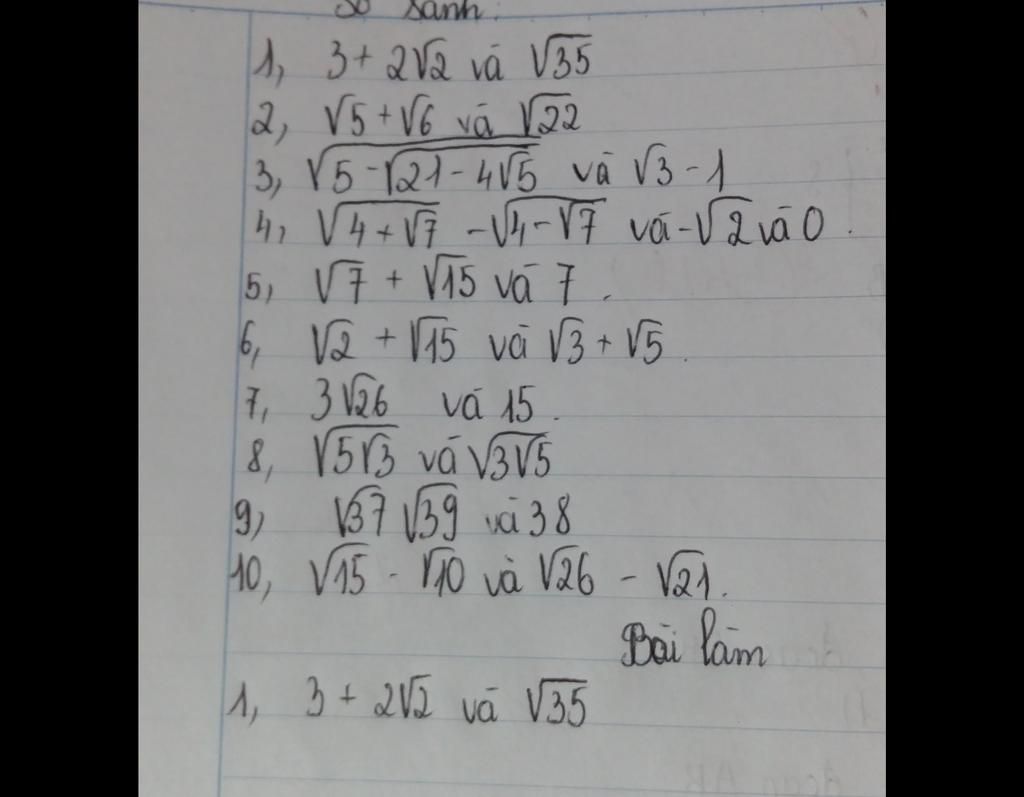 So sánh:
1, 3 + 2√2 và √35
2, √5 + √6 và √22
3, √(5 - √(21 - 4√5)) và √3 - 1
4, √(4 + √7) - √(4 - √7) và - √2 và 0.
5, √7 + √15 và 7.
6, √2 + √15 và √3 + √5.
7, 3√26 và 15.
8, √(5√3) và √(3√5)
9, √37 √39 và 38
10, √15 - √10 và √26 - √21.
Bài làm
1, 3 + 2√2 và √35